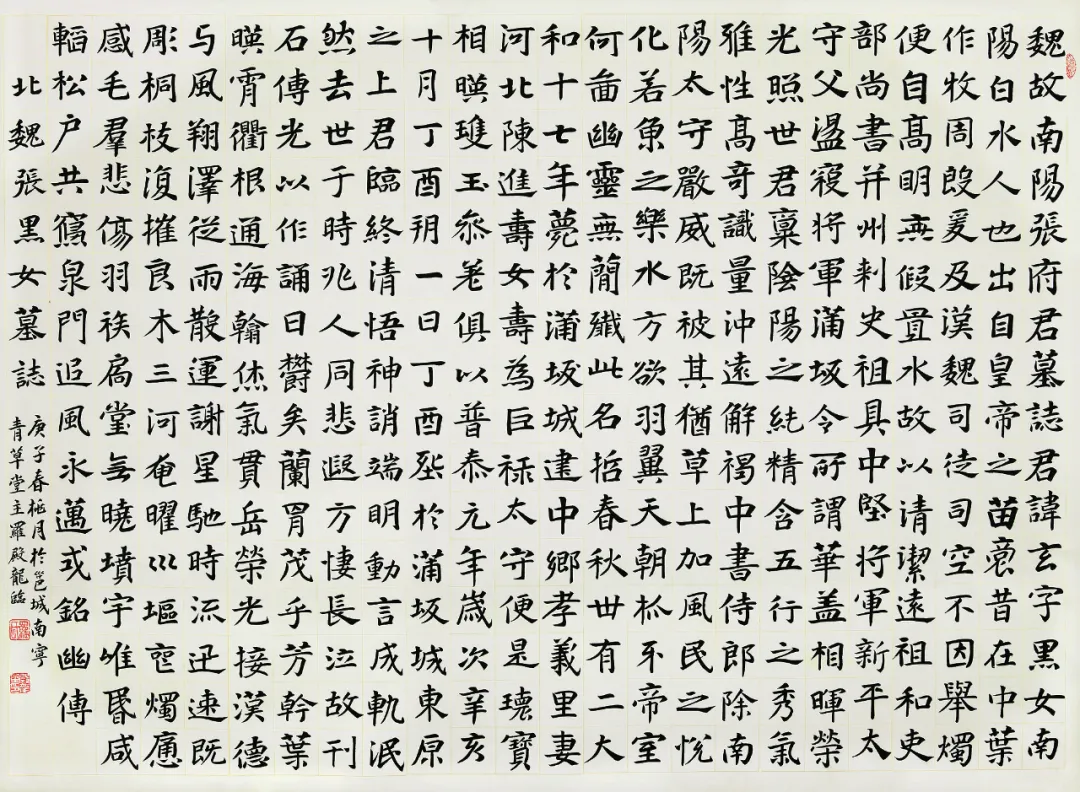 魏故南陽張府君墓誌君諱玄字黑女南
陽白水人也出自皇帝之苗裔昔在中葉
作牧周殷爰及漢魏司徒司空不因舉燭
便自高明無假置水故以清潔遠祖和吏
部尚書并州刺史祖具中堅將軍新平太
守父盪寇將軍蒲坂令所謂華蓋相暉榮
光照世君稟陰陽之純精含五行之秀氣
雅性高奇識量沖遠解褐中書侍郎除南
陽太守嚴威既被其猶草上加風民之悅
化若魚之樂水方欲羽翼天朝枛牙帝室
何啚幽靈無簡殲此名哲春秋卅有二大
和十七年薨於蒲坂城建中鄉孝義里妻
河北陳進壽女壽為巨祿太守便是瓌寶
相暎瓊玉參差俱以普泰元年歲次辛亥
十月丁酉朔一日丁酉葬於蒲坂城東原
之上君臨終清悟神誚端明動言成軌泯
然去世于時兆人同悲遐方悽長泣故刊
石傳光以作誦曰欝矣蘭胄茂乎芳幹葉
暎霄衢根通海翰休氣貫岳榮光接漢德
与風翔澤從雨散運謝星馳時流迅速既
彫桐枝復摧良木三河奄曜巛塸燭痛
感毛羣悲傷羽袟扃堂無曉墳宇唯昏咸
韜松户共寢泉門追風永邁式銘幽傳
北魏張黑女墓誌
庚子春桃月於邕城南寧
青草堂主羅殿龍臨